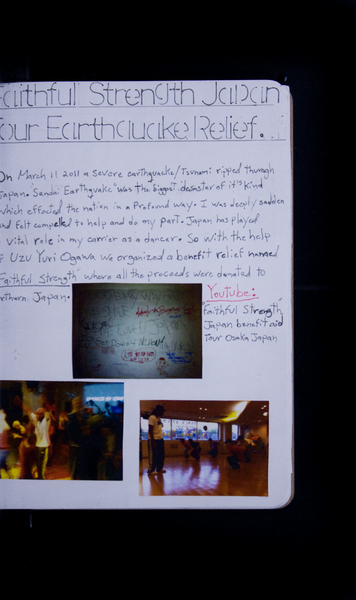 Faithful Strength Japan
Tour Earthquake Relief.
On March 11 2011 a severe earthquake/Tsunami ripped through
Japan. "Sendai Earthquake" was the biggest desaster of it's kind
which effected the nation in a Profound way. I was deeply sadden
and felt compelled to help and do my part. Japan has played
vital role in my carrier as a dancer. So with the help
of Uzu Yuri Ogawa we organized a benefit relief named
"Faithful Strength" where all the proceeds were donated to
northern Japan.
Youtube:
"Faithful Strength"
Japan benefit aid
Tour Osaka Japan